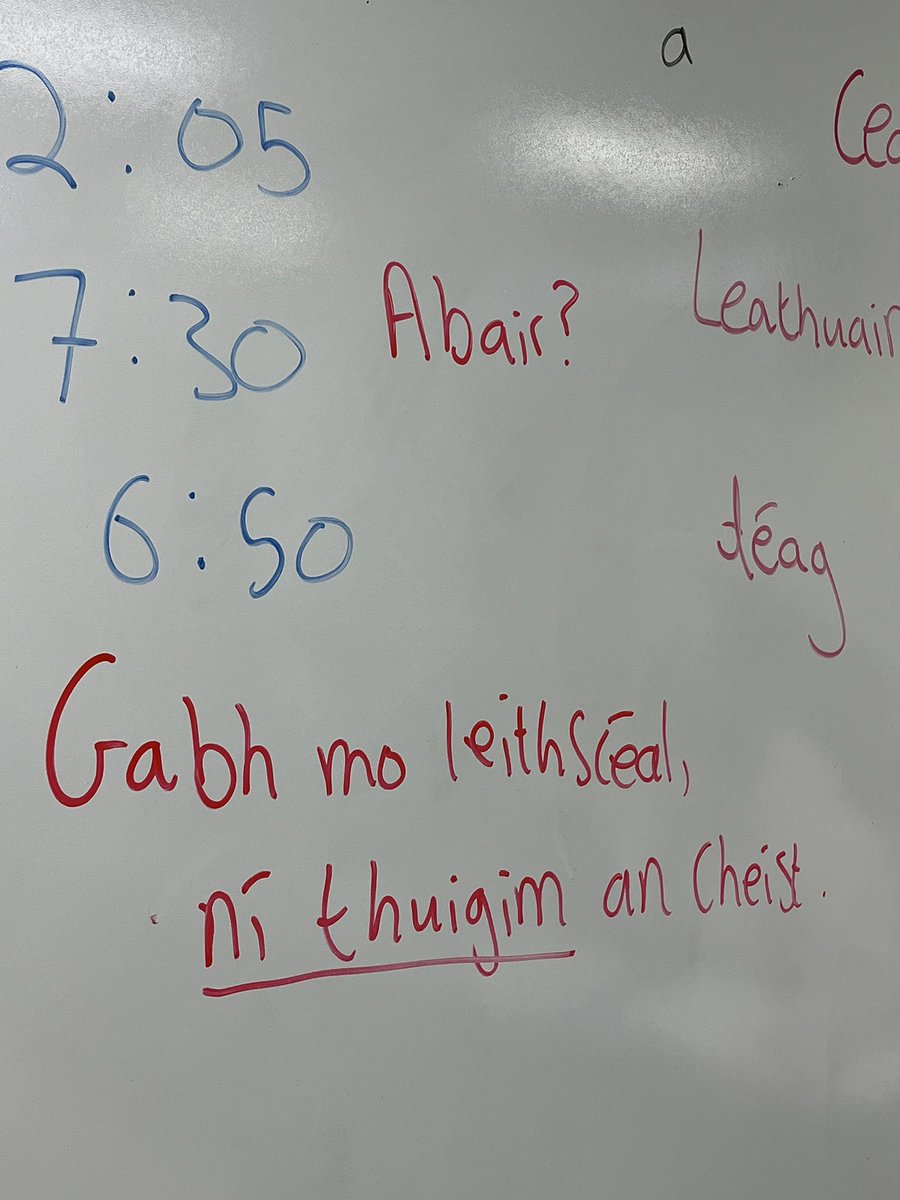 a
2:05
7:30 Abair? Leathuair
6:50 déag
Gabh mo leithscéal,
ní thuigim an cheist.